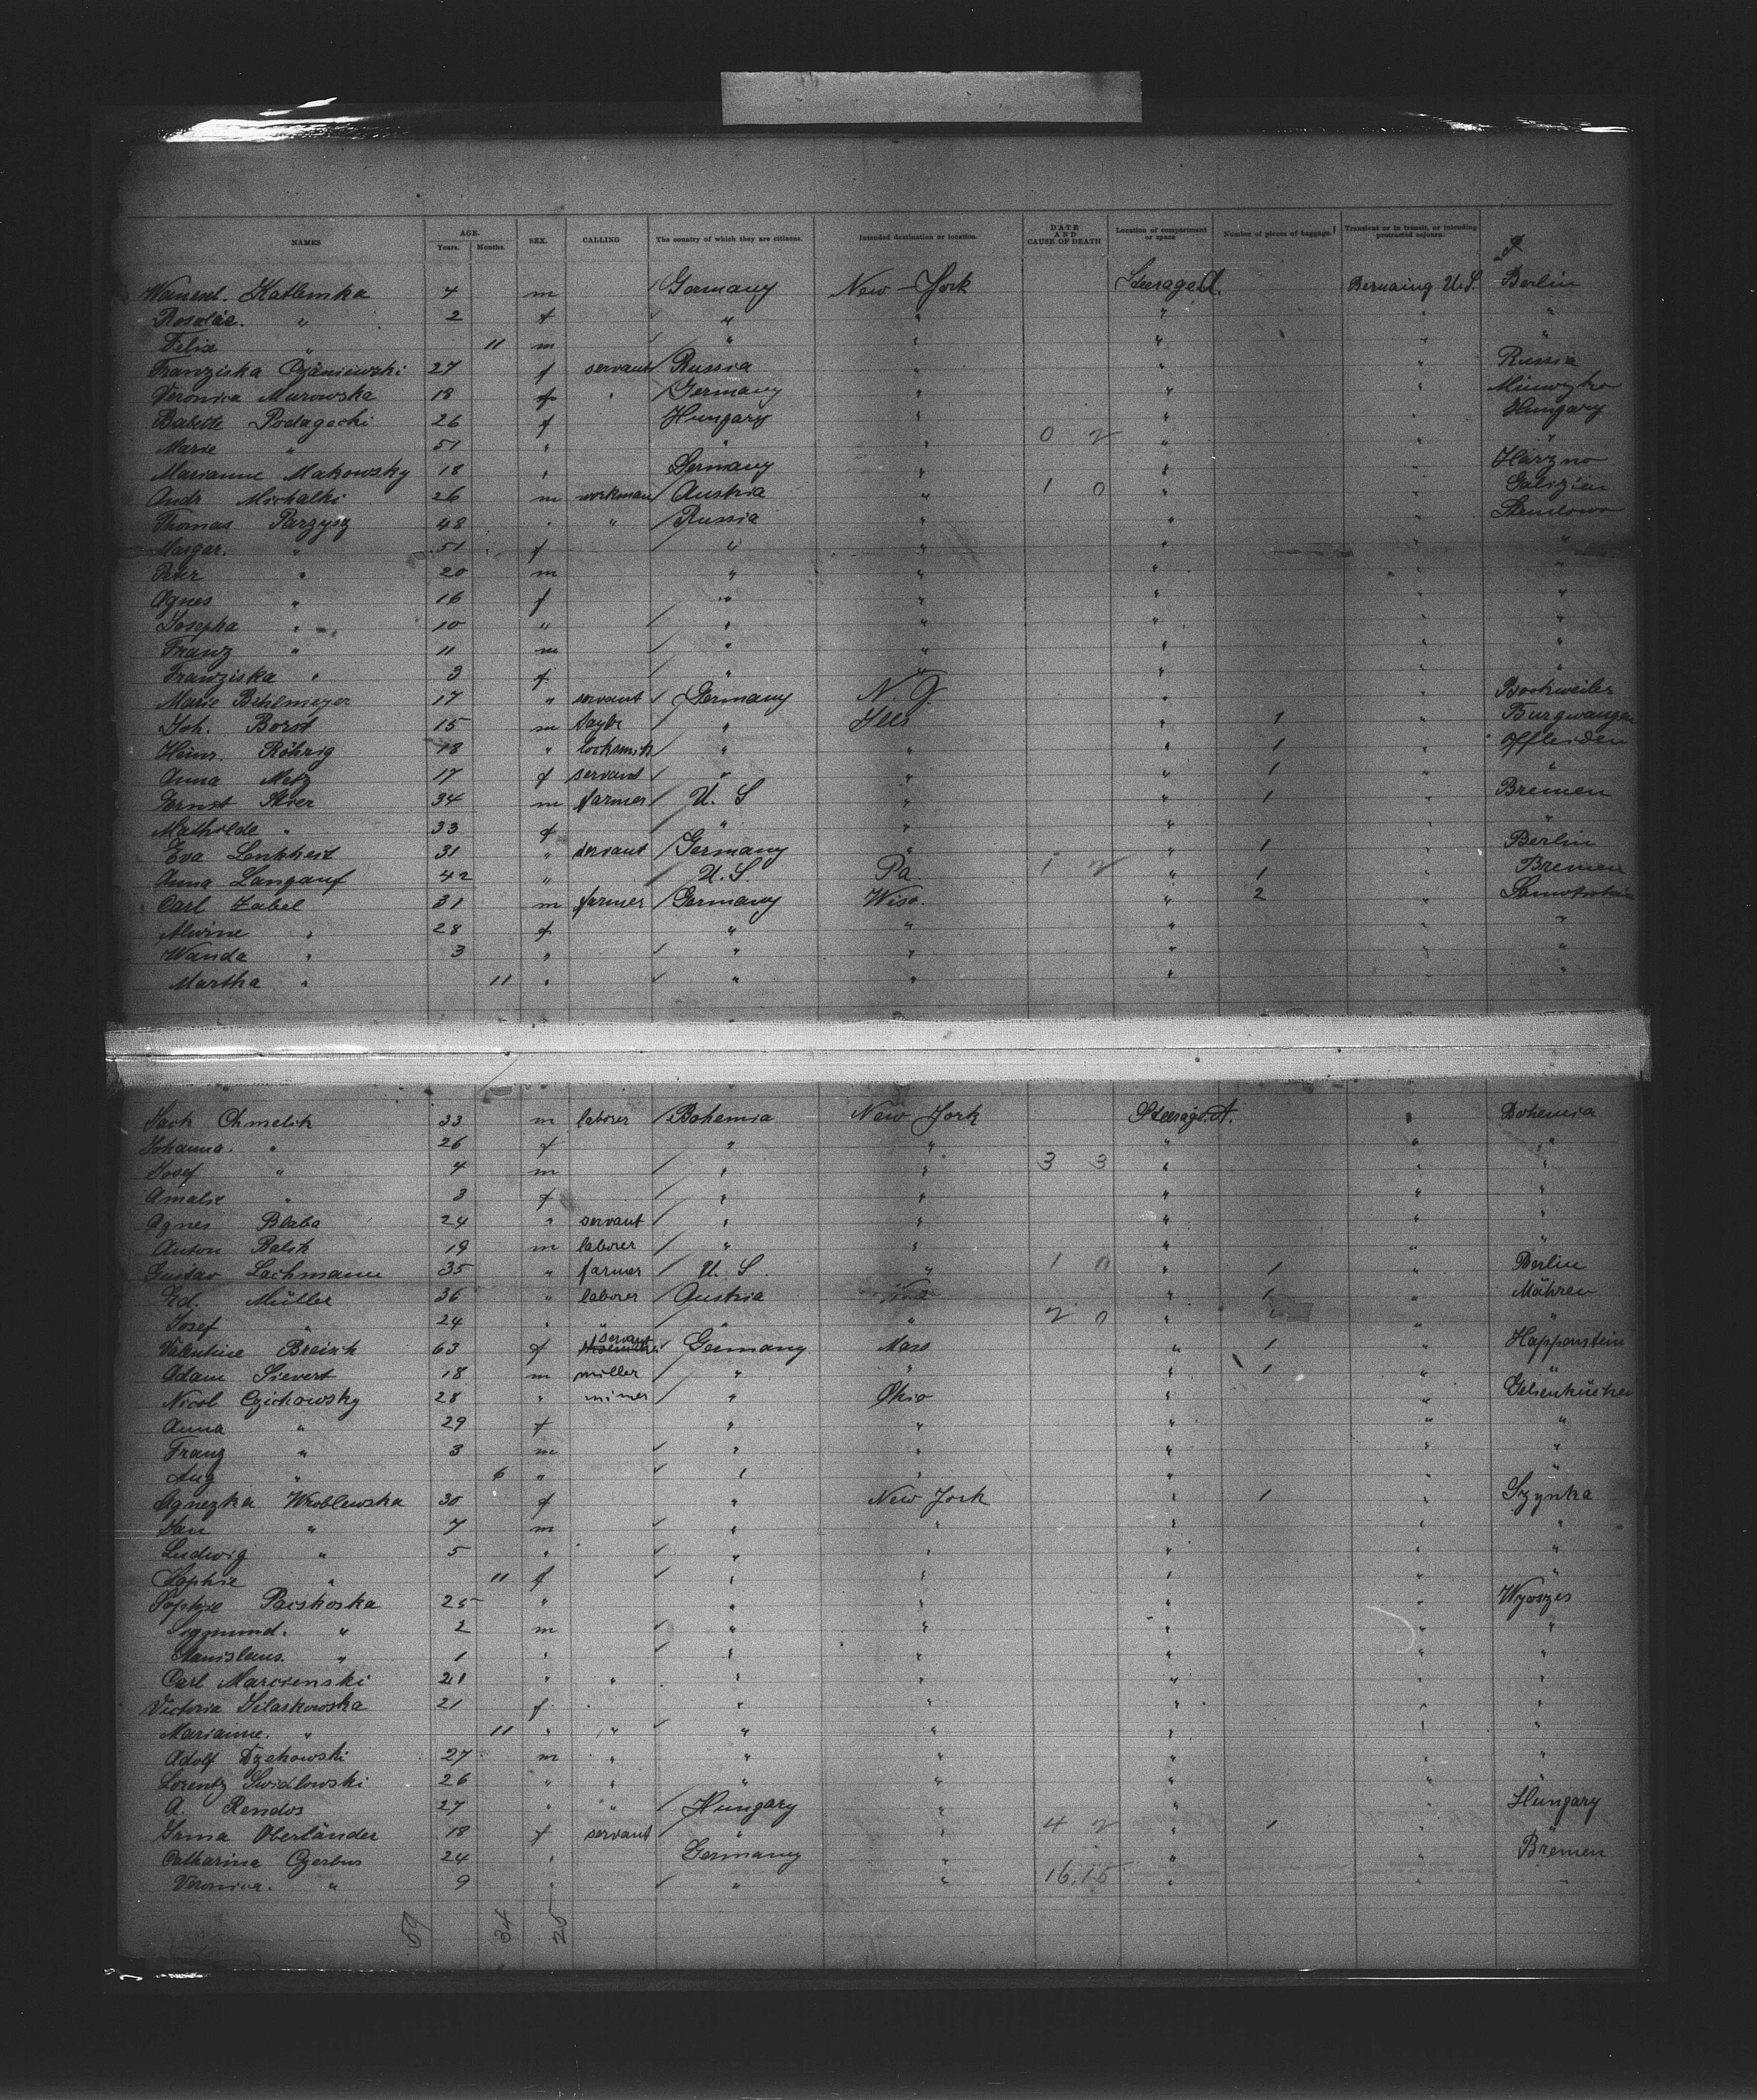 NAMES AGE. Years. Months. SEX. CALLING The country of which they are citizens. Intended destination or location. DATE AND CAUSE OF DEATH Location of compartment or space Number of pieces of baggage. Transient or in transit, or intending protracted sojourn.
Katlemka 4 m Germany New-York Steerage A. U.S. Berlin
Rosalie. " 2 f " " " " "
Felix " 11 m " " " " "
Franziska 27 f servant Russia " " " Russia
Veronica Murowska 18 f " Germany " " "
Babette Podagecki 26 f Hungary " " " Hungary
Marie " 51 " " " 0 2 " " "
Marianne Makowsky 18 " Germany " " " Harzno
Andr Michalki 26 m workman Austria " 1 0 " " Galizien
Thomas Parzysz 48 " " Russia " " "
Margar. " 51 f " " " " "
Peter " 20 m " " " " "
Agnes " 16 f " " " " "
Josepha " 10 " " " " " "
Franz " 11 m " " " " "
Franziska " 3 f " " " " "
Marie Bihlmeyer 17 " servant Germany N. J. " " Bookweiler
Joh. Borst 15 m " " 1 " Burgwangen
Heinr. Röhrig 18 " locksmith " " " 1 " Offleiden
Anna Metz 17 f servant " " " 1 " "
Ernst 34 m farmer U. S " " 1 " Bremen
Mathilde " 33 f " " " " "
Eva Lenkheit 31 " servant Germany " " 1 " Berlin
Anna Langauf 42 " U.S. Pa. 1 2 " 1 " Bremen
Carl Zabel 31 m farmer Germany Wisc. " 2 "
Alwine " 28 f " " " " "
Wanda " 3 " " " " " "
Martha " 11 " " " " " "
Chmelik 33 m laborer Bohemia New York Steerage A. " Bohemia
Johanna. " 26 f " " " " "
Josef " 4 m " " 3 3 " " "
Amalie " 3 f " " " " "
Agnes Blaba 24 " servant " " " " "
Anton Balik 19 m laborer " " " " "
Gustav Lachmann 35 " farmer U. S. " 1 0 " 1 " Berlin
Ed. Müller 36 " laborer Austria " 1 " Mähren
Josef " 24 " " " " 2 0 " " "
Valentine Breisch 63 f servant Germany Mass " 1 " Happenstein
Adam Sievert 18 m miller " " " 1 " "
Nicol Czichowsky 28 " miner " Ohio " "
Anna " 29 f " " " " "
Franz " 3 m " " " " "
Aug " 6 " " " " " "
Agnezka Wroblewska 30 f " New York " 1 " Szynka
Jan " 7 m " " " " "
Ludwig " 5 " " " " " "
Sophie " 11 f " " " " "
Sophie Pacskoska 25 " " " " "
Sigmund. " 2 m " " " " "
Stanislaus. " 1 " " " " " "
Carl Marcienski 21 " " " " " " "
Victoria 21 f " " " " " "
Marianne. " 11 " " " " " " "
Adolf 27 m " " " " " "
Lorentz Swidlowski 26 " " " " " " "
A. Rendos 27 " " Hungary " " " Hungary
Oberländer 18 f servant " " 4 2 " 1 "
Catharina Czerbus 24 " Germany " " " Bremen
Veronica. " 9 " " " 16.15 " " "
59 34 25